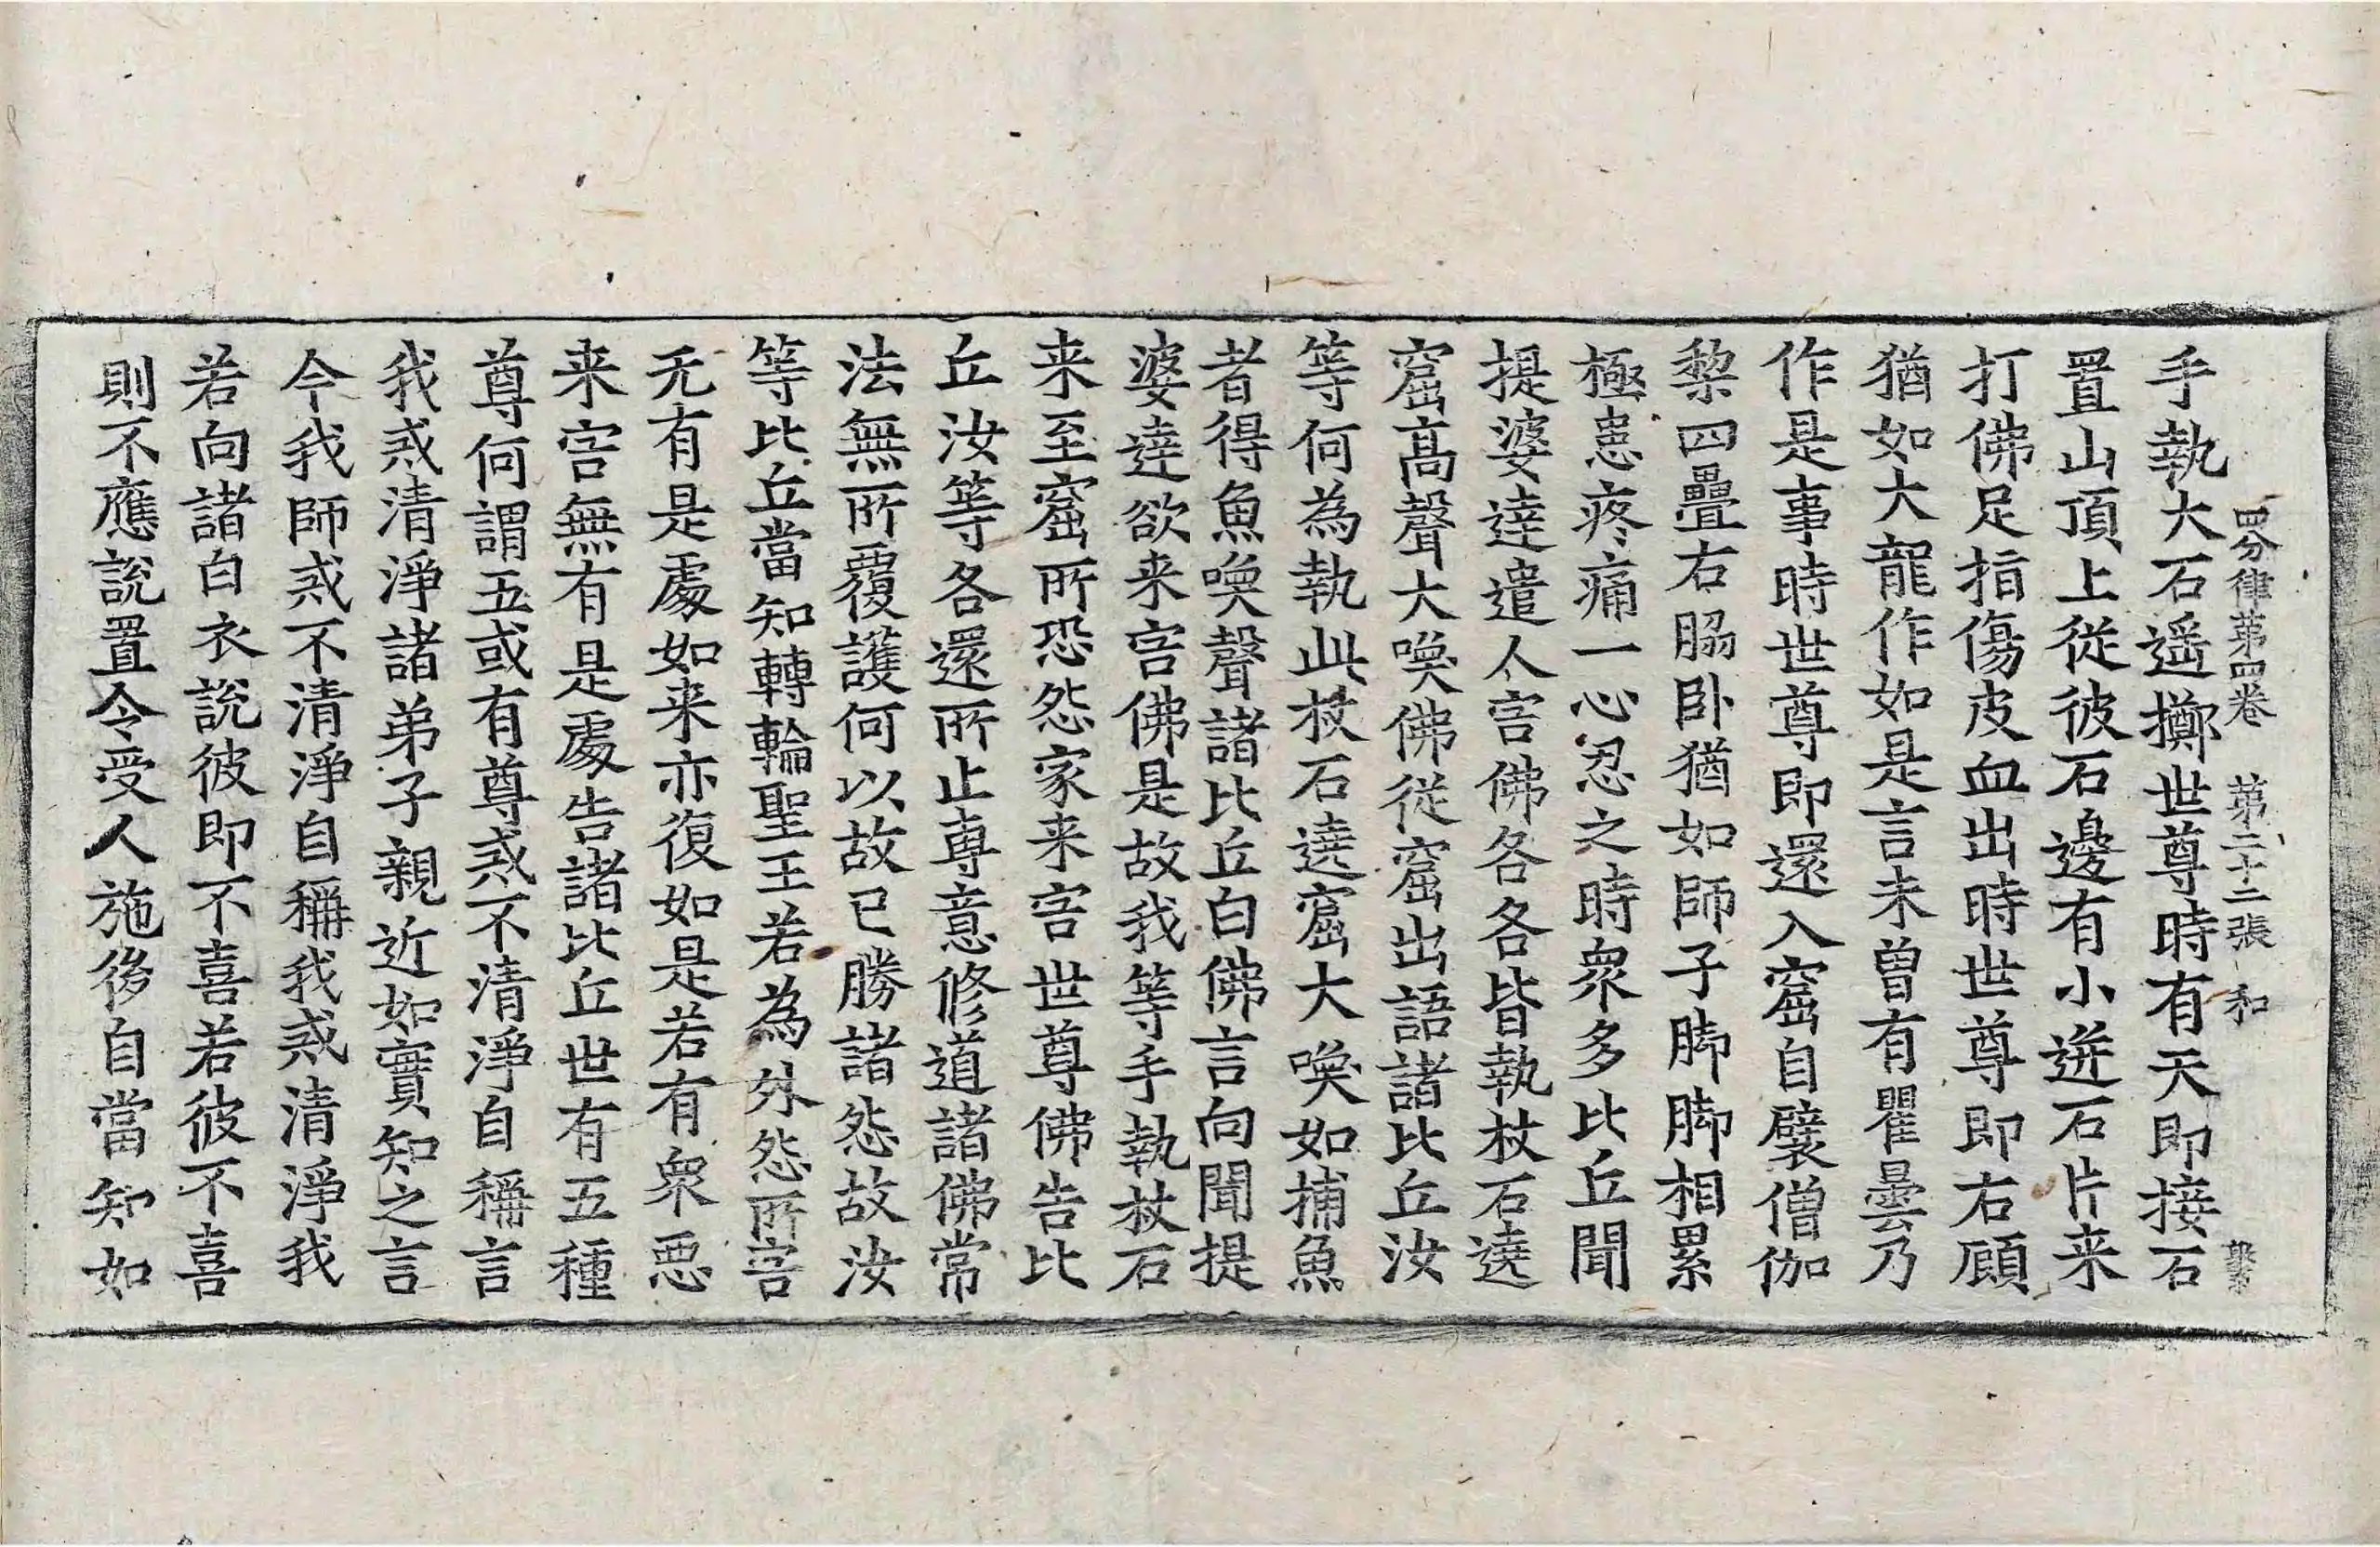 四分律第四卷 第二十二張 和
手執大石遥擲世尊時有天即接石
置山頂上從彼石邊有小迸石片来
打佛足指傷皮血出時世尊即右顧
猶如大龍作如是言未曽有瞿曇乃
作是事時世尊即還入窟自襞僧伽
黎四疊右脇卧猶如師子脚脚相累
極患疼痛一心忍之時衆多比丘聞
提婆達遣人害佛各各皆執杖石遶
窟髙聲大喚佛從窟出語諸比丘汝
等何為執此杖石遶窟大喚如捕魚
者得魚喚聲諸比丘白佛言向聞提
婆達欲来害佛是故我等手執杖石
来至窟所恐怨家来害世尊佛告比
丘汝等各還所止專意修道諸佛常
法無所覆護何以故已勝諸怨故汝
等比丘當知轉輪聖王若為外怨所害
无有是處如来亦復如是若有衆惡
来害無有是處告諸比丘世有五種
尊何謂五或有尊或不清淨自稱言
我或清淨諸弟子親近如實知之言
今我師或不清淨自稱我或清淨我
若向諸白衣說彼即不喜若彼不喜
則不應說置令受人施後自當知如